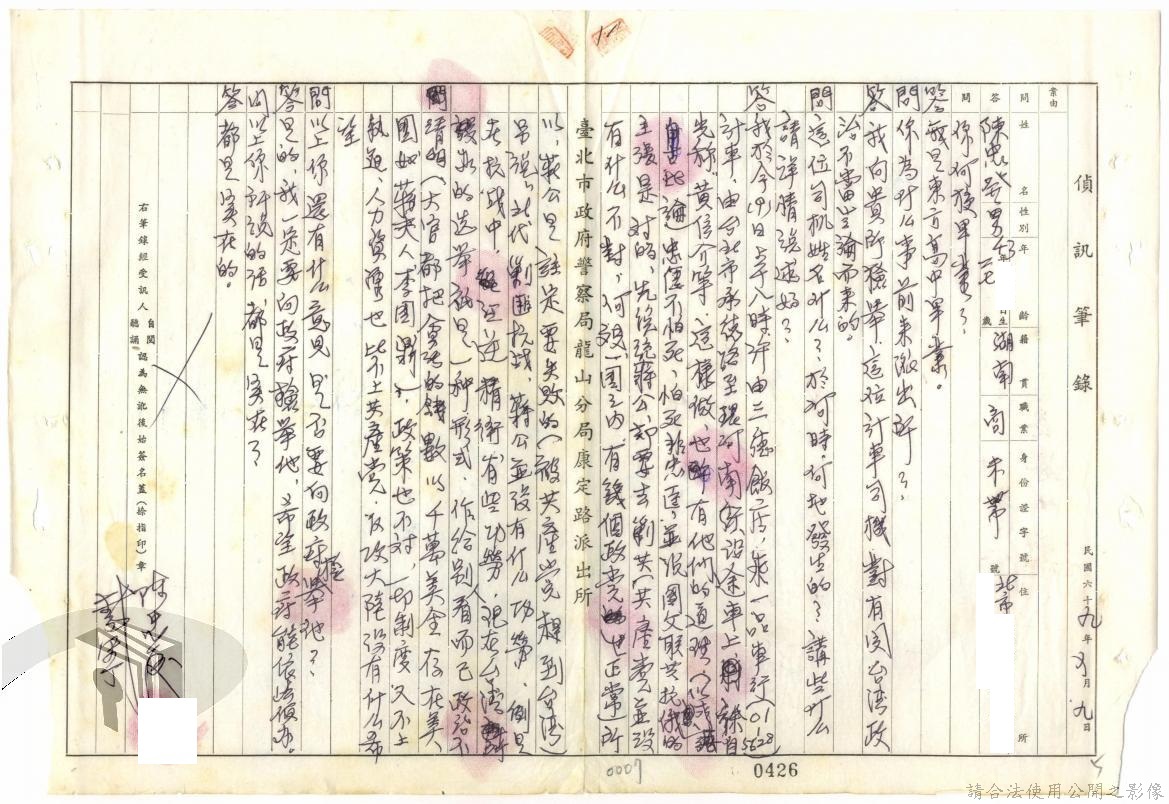 偵訊筆錄
民國六十九年 月九日
案由
問 姓名 性別 年齡 籍貫 職業 身份證字號 住所
答 陳忠 男 年 生 歲 湖南 商 未帶 北市 號
問 你何種畢業?
答 我是東方高中畢業。
問 你為什么事前來派出所?
答 我向貴所檢舉這位計車司機對有関台湾政
治不當言論而來的。
問 這位司机姓名什么?於何時何地發生的?講些什么
請詳情説述好?
答 我於今(9)日上午八時許由三德飯店,乘一品車行(01-
5628)
計車,由台北市承德路至環河南街設途車上,司機自
先称"黃信介等,這樣做,也許有他們的道理
論忠僅不怕死、怕死非忠臣,並説國父联共抗俄的
主張是对的,先総統蔣公,却要去剿共(共產党並没
有什么不對,何况一国之内有幾個政党也正常)所
臺北市政府警察局龍山分局康定路派出所
以,蔣公是註定要失敗的(被共產党趕到台湾)
另説:北代剿匪抗战,蔣公並没有什么功勞,倒是
在抗战中汪逆精衛,有些功勞,現在台湾所
謂新的选举祇是一種形式,作給别人看而已政治不
清明(大官都把会計的錢数以千萬美金存在美
国如蔣夫人李国鼎),政策也不对,一切制度又不上
軌道,人力資源也比不上共產党,反攻大陸没有什么希
望
問 以上你還有什么意見?是否要向政府檢舉他?
答 是的,我一定要向政府檢舉他,希望政府能依法偵办。
問 以上你所説的話,都是实在?
答 都是实在的。
右筆錄經受訊人 自閱 聽誦 認為無訛後始簽名蓋(捺指印)章
0007
0426
請合法使用公開之影像